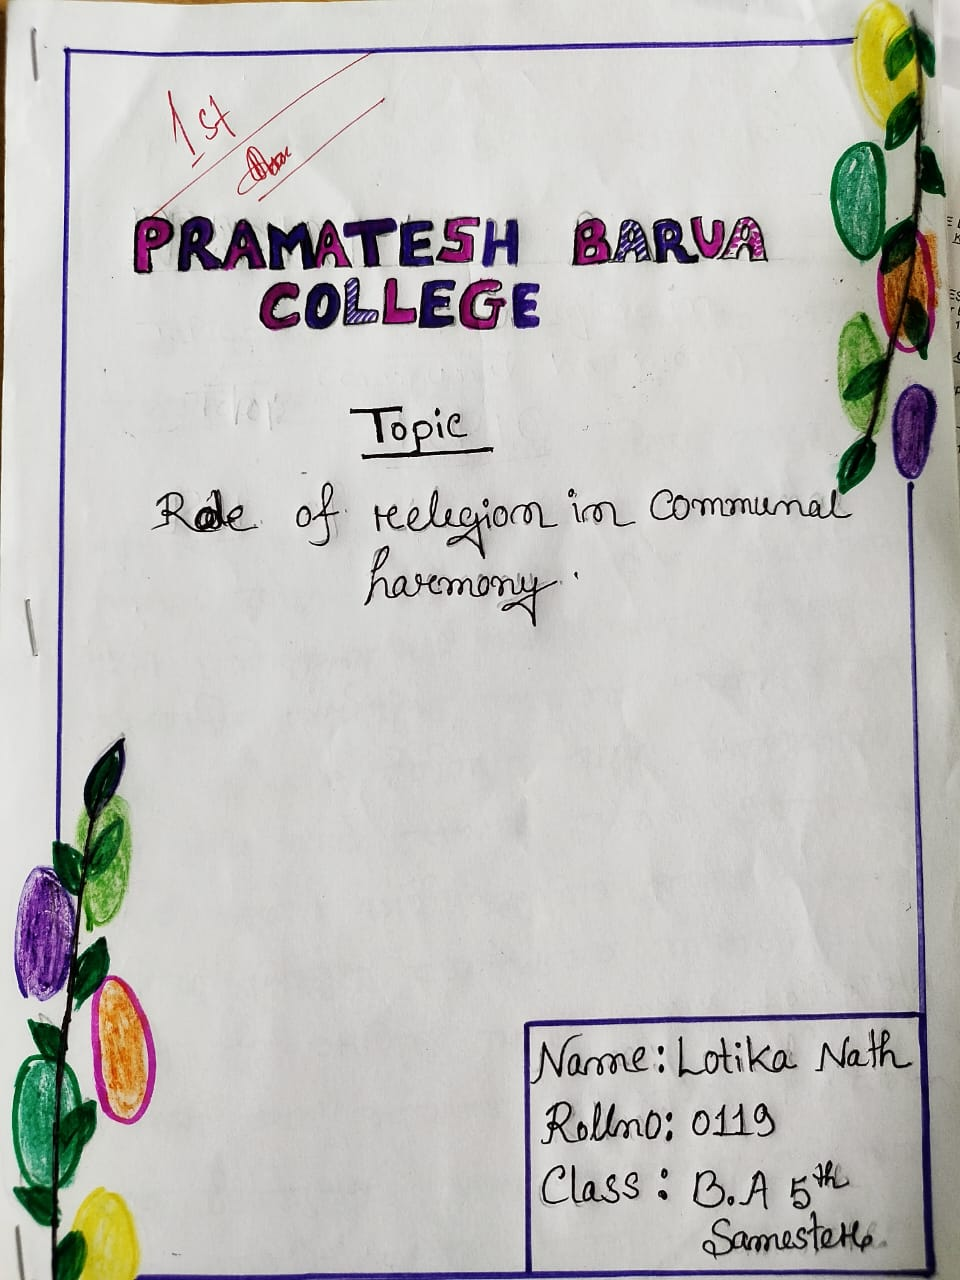 1st
PRAMATESH BARUA
COLLEGE
Topic
Role of religion in communal
harmony.
Name: Lotika Nath
Rollno: 0119
Class: B.A 5th
Samester